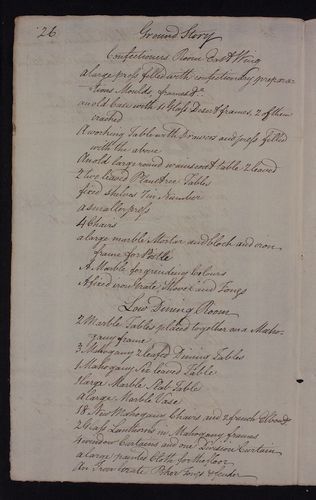 26 Ground Story
Confectioners Room East Wing
a large press filled with confectionary prepara-
tions Moulds, frames &c
an old Case with 4 Glass Desert frames, 2 of them
cracked
A working Table with Drawers and press filled
with the above
An old large round wainscot table 2 leaved
2 two leaved Planetree Tables
fixed shelves 7 in Number
a smaller press
4 Chairs
a large marble Mortar and block and iron
frame for Pestle
A Marble for grinding Colours
A fixed iron Grate, Shovel and Tongs
Low Dining Room
2 Marble Tables placed together on a Maho-
gany frame
3 Mahogany 2 leafed Dining Tables
1 Mahogany Six leaved Table
1 large Marble Slab Table
a large Marble Vase
18 New Mahogany Chairs and 2 french Elbow
2 Glass Lanthorns in Mahogany frames
4 window Curtains and one Division Curtain
a large painted Cloth for the floor
An Iron Grate Poker Tongs & fender